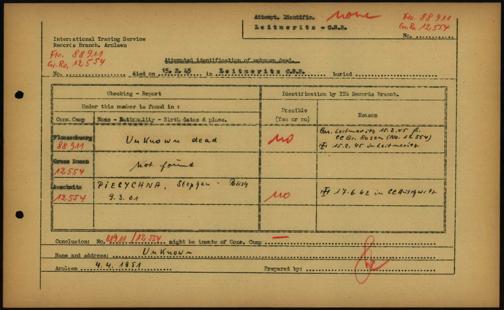 Attempt. Identific. none
Leitmeritz - C.S.R.
Flo. 88911
Gr.Ro. 12554
No.
International Tracing Service
Records Branch, Arolsen
Flo. 88911
Gr.Ro. 12554
Attempted identification of unknown dead.
No. died on 15.2.45 in Leitmeritz C.S.R. buried
Checking - Report
Identification by ITS Records Branch.
Under this number is found in :
Possible
(Yes or no)
Reason
Conc.Camp
Name - Nationality - Birth dates & place.
Flossenburg
88911
Unknown dead
no
15.2.45 in Leitmeritz
Gross Rosen
12554
not found
Auschwitz
12554
PIERYCHNA, Stephan -
9.3.01
no
17.6.42 in CC Auschwitz
Conclusion: No. 88911/12554 might be inmate of Conc. Camp —
Name and address: Unknown
Arolsen 4.4.1951 Prepared by: